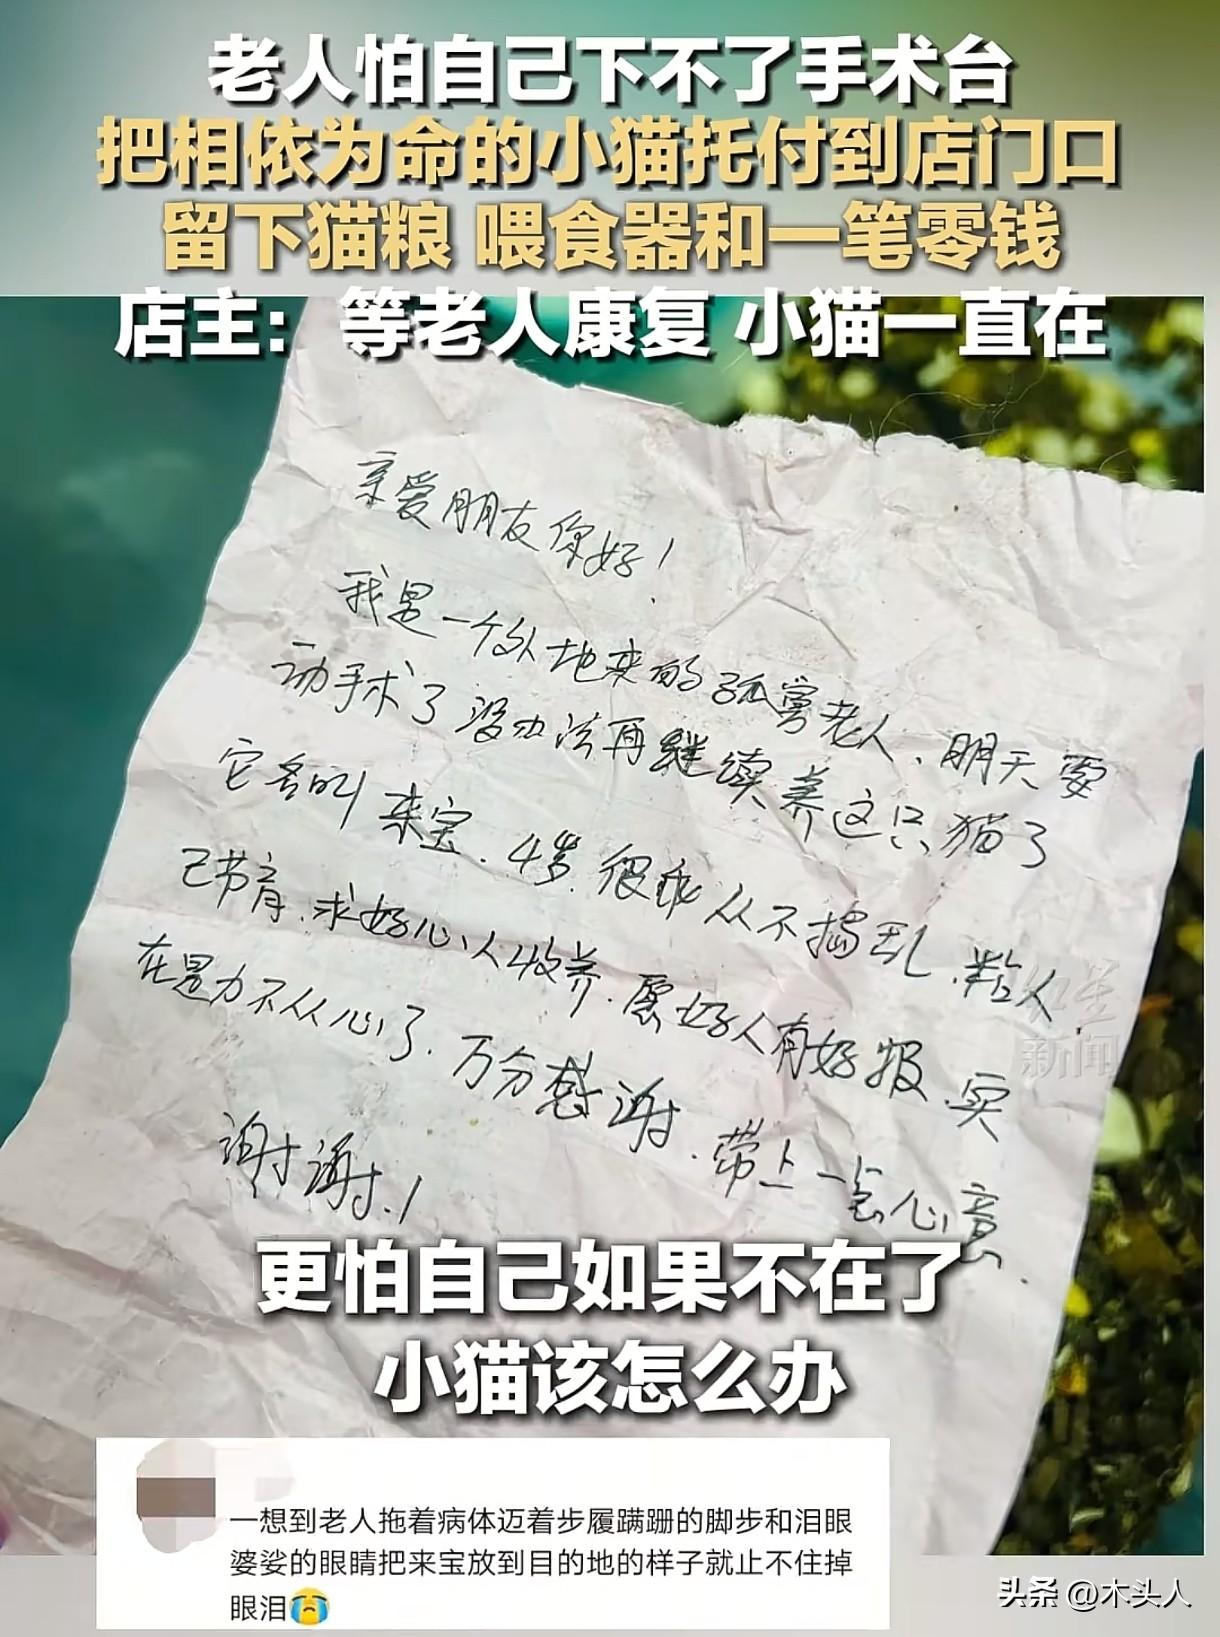 老人怕自己下不了手术台
把相依为命的小猫托付到店门口
留下猫粮 喂食器和一笔零钱
店主：等老人康复 小猫一直在
亲爱朋友你好！
我是一个外地来的孤寡老人、明天要
动手术了没办法再继续养这只猫了
它名叫来宝．4岁．很乖从不捣乱．粘人
已节育．求好心人收养．愿好人有好报．实
在是力不从心了．万分感谢．带上一点心意．
谢谢！
新闻
更怕自己如果不在了
小猫该怎么办
一想到老人拖着病体迈着步履蹒跚的脚步和泪眼
婆娑的眼睛把来宝放到目的地的样子就止不住掉
眼泪😭
头条 @木头人